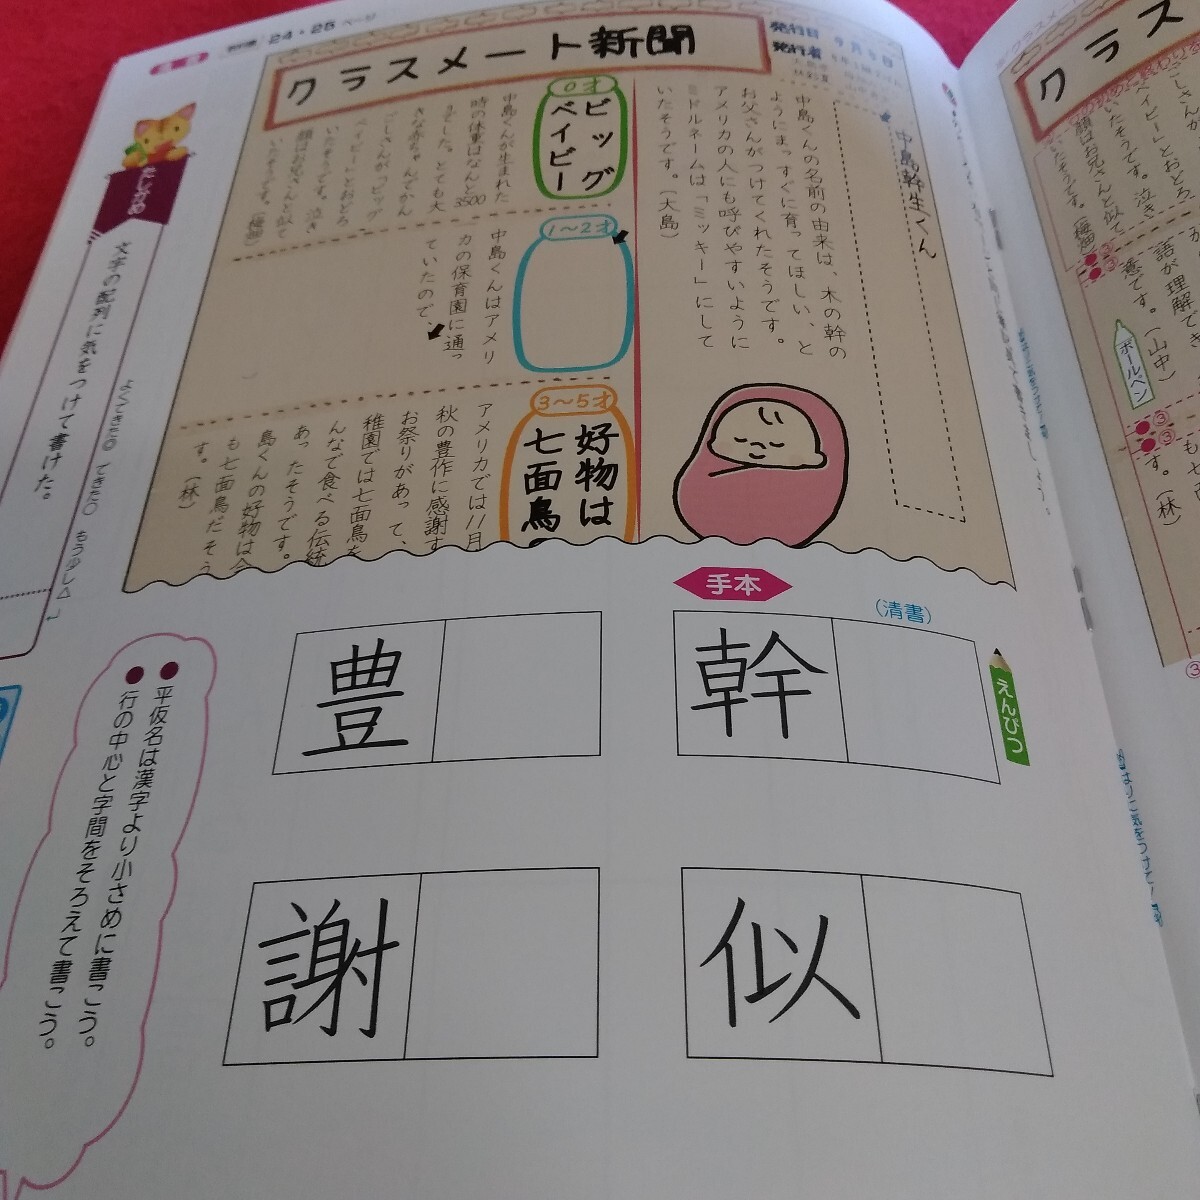 24・25ページ
クラスメート新聞
発行日 9月8日
発行者
中島幹生くん
中島くんの名前の由来は、木の幹の
ようにまっすぐに育ってほしい、と
お父さんがつけてくれたそうです。
アメリカの人にも呼びやすいように
ミドルネームは「ミッキー」にして
いたそうです。(大島)
0才
ビッグ
ベイビー
中島くんが生まれた
時の体重はなんと3500
うでした。とても大
きな赤ちゃんでかん
ごしさんが「ビッグ
ベイビー」とおどろ
いたそうです。泣き
顔はお兄さんと似て
いたそうです。(梅田)
1〜2才
中島くんはアメリ
カの保育園に通っ
ていたので、
3〜5才
好物は
七面鳥
アメリカでは11月
秋の豊作に感謝す
お祭りがあって、
稚園では七面鳥を
んなで食べる伝統
あったそうです。
島くんの好物は今
も七面鳥だそう
す。(林)
たしかめ
文字の配列に気をつけて書けた。
よくできた◎ できた○ もう少し△
手本
(清書)
えんぴつ
幹
豊
似
謝
平仮名は漢字より小さめに書こう。
行の中心と字間をそろえて書こう。
クラス
ごしさんが
ベイビー」とおどろ
いたそうです。泣き
顔はお兄さんと似て
いたそうです。(梅田)
語が理解でき
意です。(山中)
ボールペン
もや
す。(林)